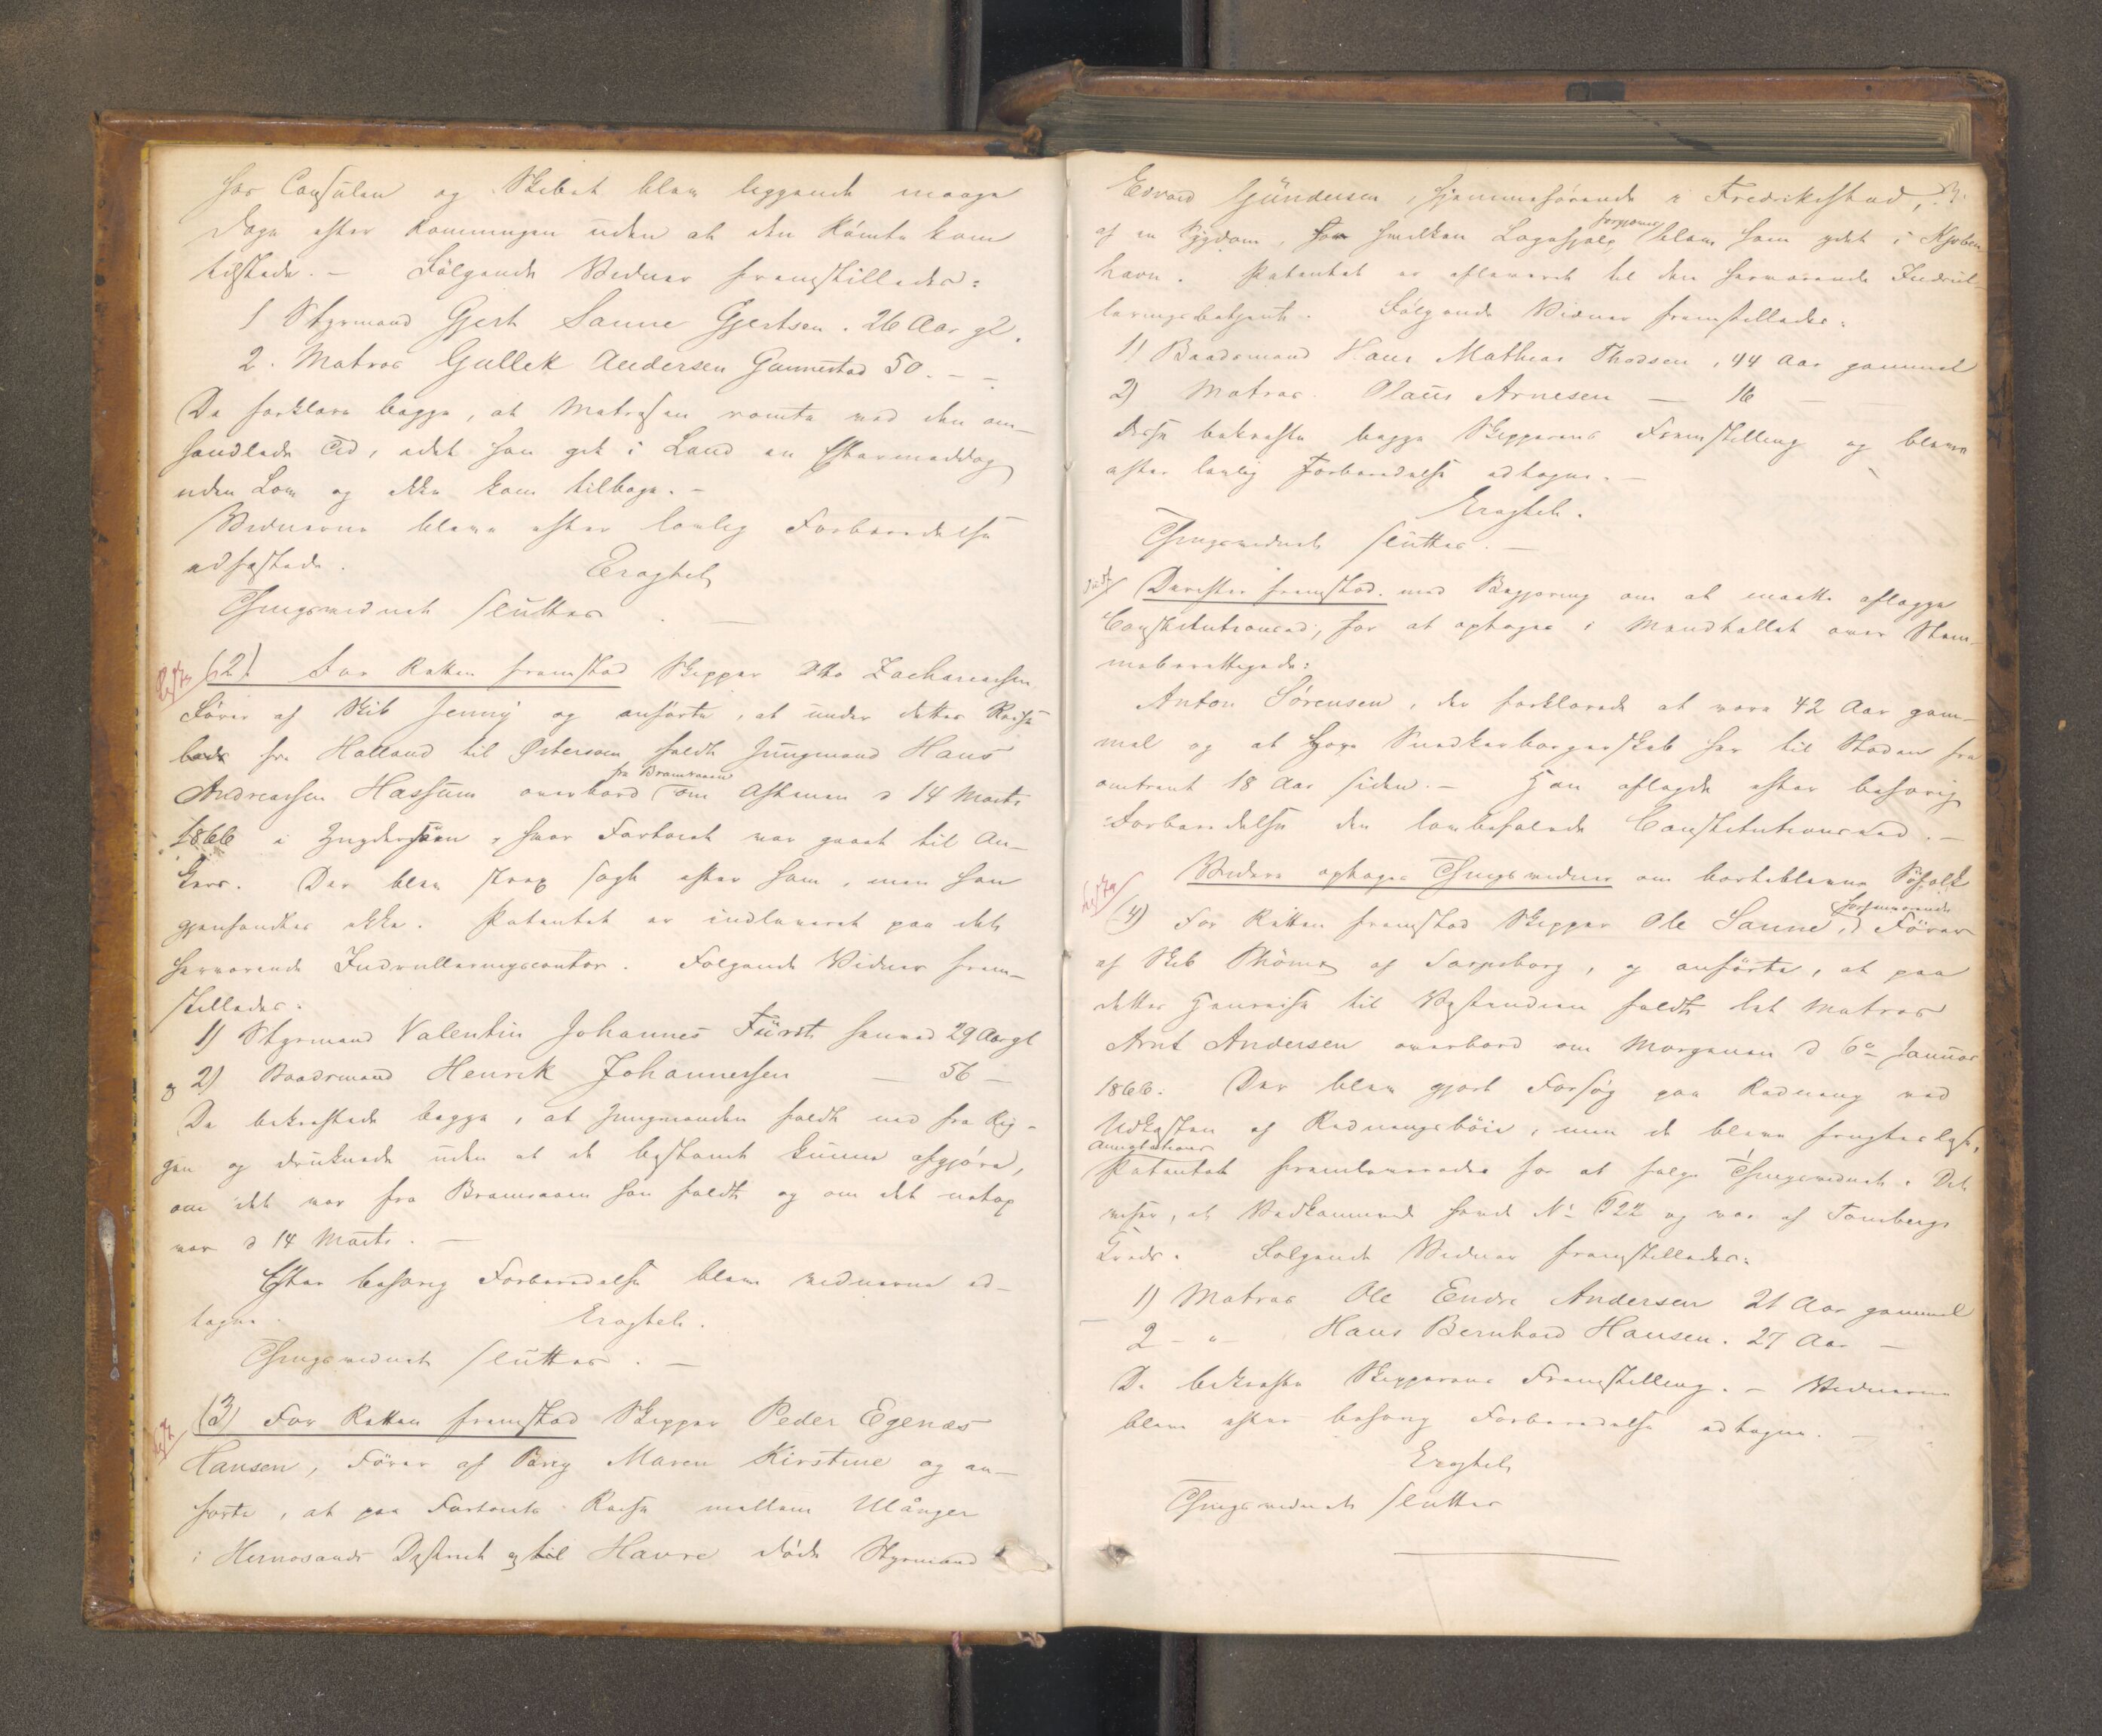 hos Consulen og Skibet blev liggende mange
Dage efter Rømningen uden at den Rømte kom
tilstede. – Følgende Vidner fremstilledes:
1 Styrmand Gjert Sanne Gjertsen. 26 Aar gl.
2. Matros Gullek Andersen Gunnestad 50. – –
De forklare begge, at Matrosen rømte ved den om-
handlede Tid, idet han gik i Land en Eftermiddag
uden Lov og ikke kom tilbage. –
Vidnerne bleve efter lovlig Forberedelse
edfæstede. Eragtet
Thingsvidnet sluttes. –
(2) For Retten fremstod Skipper Otto Zachariassen
Fører af Skib Jenny og anførte, at under dettes Reise
fra Holland til Østersøen faldt Jungmand Hans
fra Bramraaen
Andreassen Hassum overbord om Aftenen d 14 Marts
1866 i Zuydersøen, hvor Fartøiet var gaaet til An-
kers. Der blev strax søgt efter ham, men han
gjenfandtes ikke. Patentet er indleveret paa det
herværende Indrulleringscontor. Følgende Vidner frem-
stilledes:
1) Styrmand Valentin Johannes Fürst 29 Aar gl
2) Baadsmand Henrik Johannessen – 56 –
De bekræftede begge, at Jungmanden faldt ned fra Rig-
gen og druknede uden at de bestemt kunne afgjøre,
om det var fra Bramraaen han faldt og om det netop
var d 14 Marts. –
Efter behørig Forberedelse bleve Vidnerne ed-
tagne. Eragtet.
Thingsvidnet sluttes. –
(3) For Retten fremstod Skipper Peder Egenæs
Hansen, Fører af Brig Maren Kirstine og an-
førte, at paa Fartøiets Reise mellem Ulånger
i Hernøsands District og til Havre døde Styrmand
Edvard Gundersen, hjemmehørende i Fredrikstad, 3.
forgjæves
af en Sygdom, for hvilken Lægehjælp blev ham ydet i Kjøben-
havn. Patentet er afleveret til den herværende Indrul-
leringsbetjent. Følgende Vidner fremstilledes:
1) Baadsmand Hans Mathias Thodsen, 44 Aar gammel
2) Matros Olaus Arnesen – 16 –
Disse bekræfte begge Skipperens Fremstilling og bleve
efter lovlig Forberedelse edtagne. –
Eragtet.
Thingsvidnet sluttes. –
Derefter fremstod med Begjæring om at maatte aflægge
Constitutionsed, for at optages i Mandtallet over Stem-
meberettigede:
Anton Sørensen, der forklarede at være 42 Aar gam-
mel og at have Snedkerborgerskab her til Staden fra
omtrent 18 Aar siden. – Han aflagde efter behørig
Forberedelse den lovbefalede Constitutionsed. –
Videre optages Thingsvidner om borteblevne Søfolk
forhenværende
(4) For Retten fremstod Skipper Ole Sanne, Fører
af Skib af Sarpsborg, og anførte, at paa
dettes Henreise til Vestindien faldt Let Matros
Arnt Andersen overbord om Morgenen d 6te Januar
1866. Der blev gjort Forsøg paa Redning ved
Udkasten af Redningsbøie, men de bleve frugtesløse.
Annotations
Patentet fremleveredes for at følge Thingsvidnet. Det
viser, at Vedkommende havde No 522 og var af Tønsbergs
Kreds. Følgende Vidner fremstilledes:
1) Matros Ole Endre Andersen 21 Aar gammel
2 – " – Hans Bernhard Hansen. 27 Aar –
De bekræfte Skipperens Fremstilling. – Vidnerne
bleve efter behørig Forberedelse edtagne. –
Eragtet
Thingsvidnet sluttes